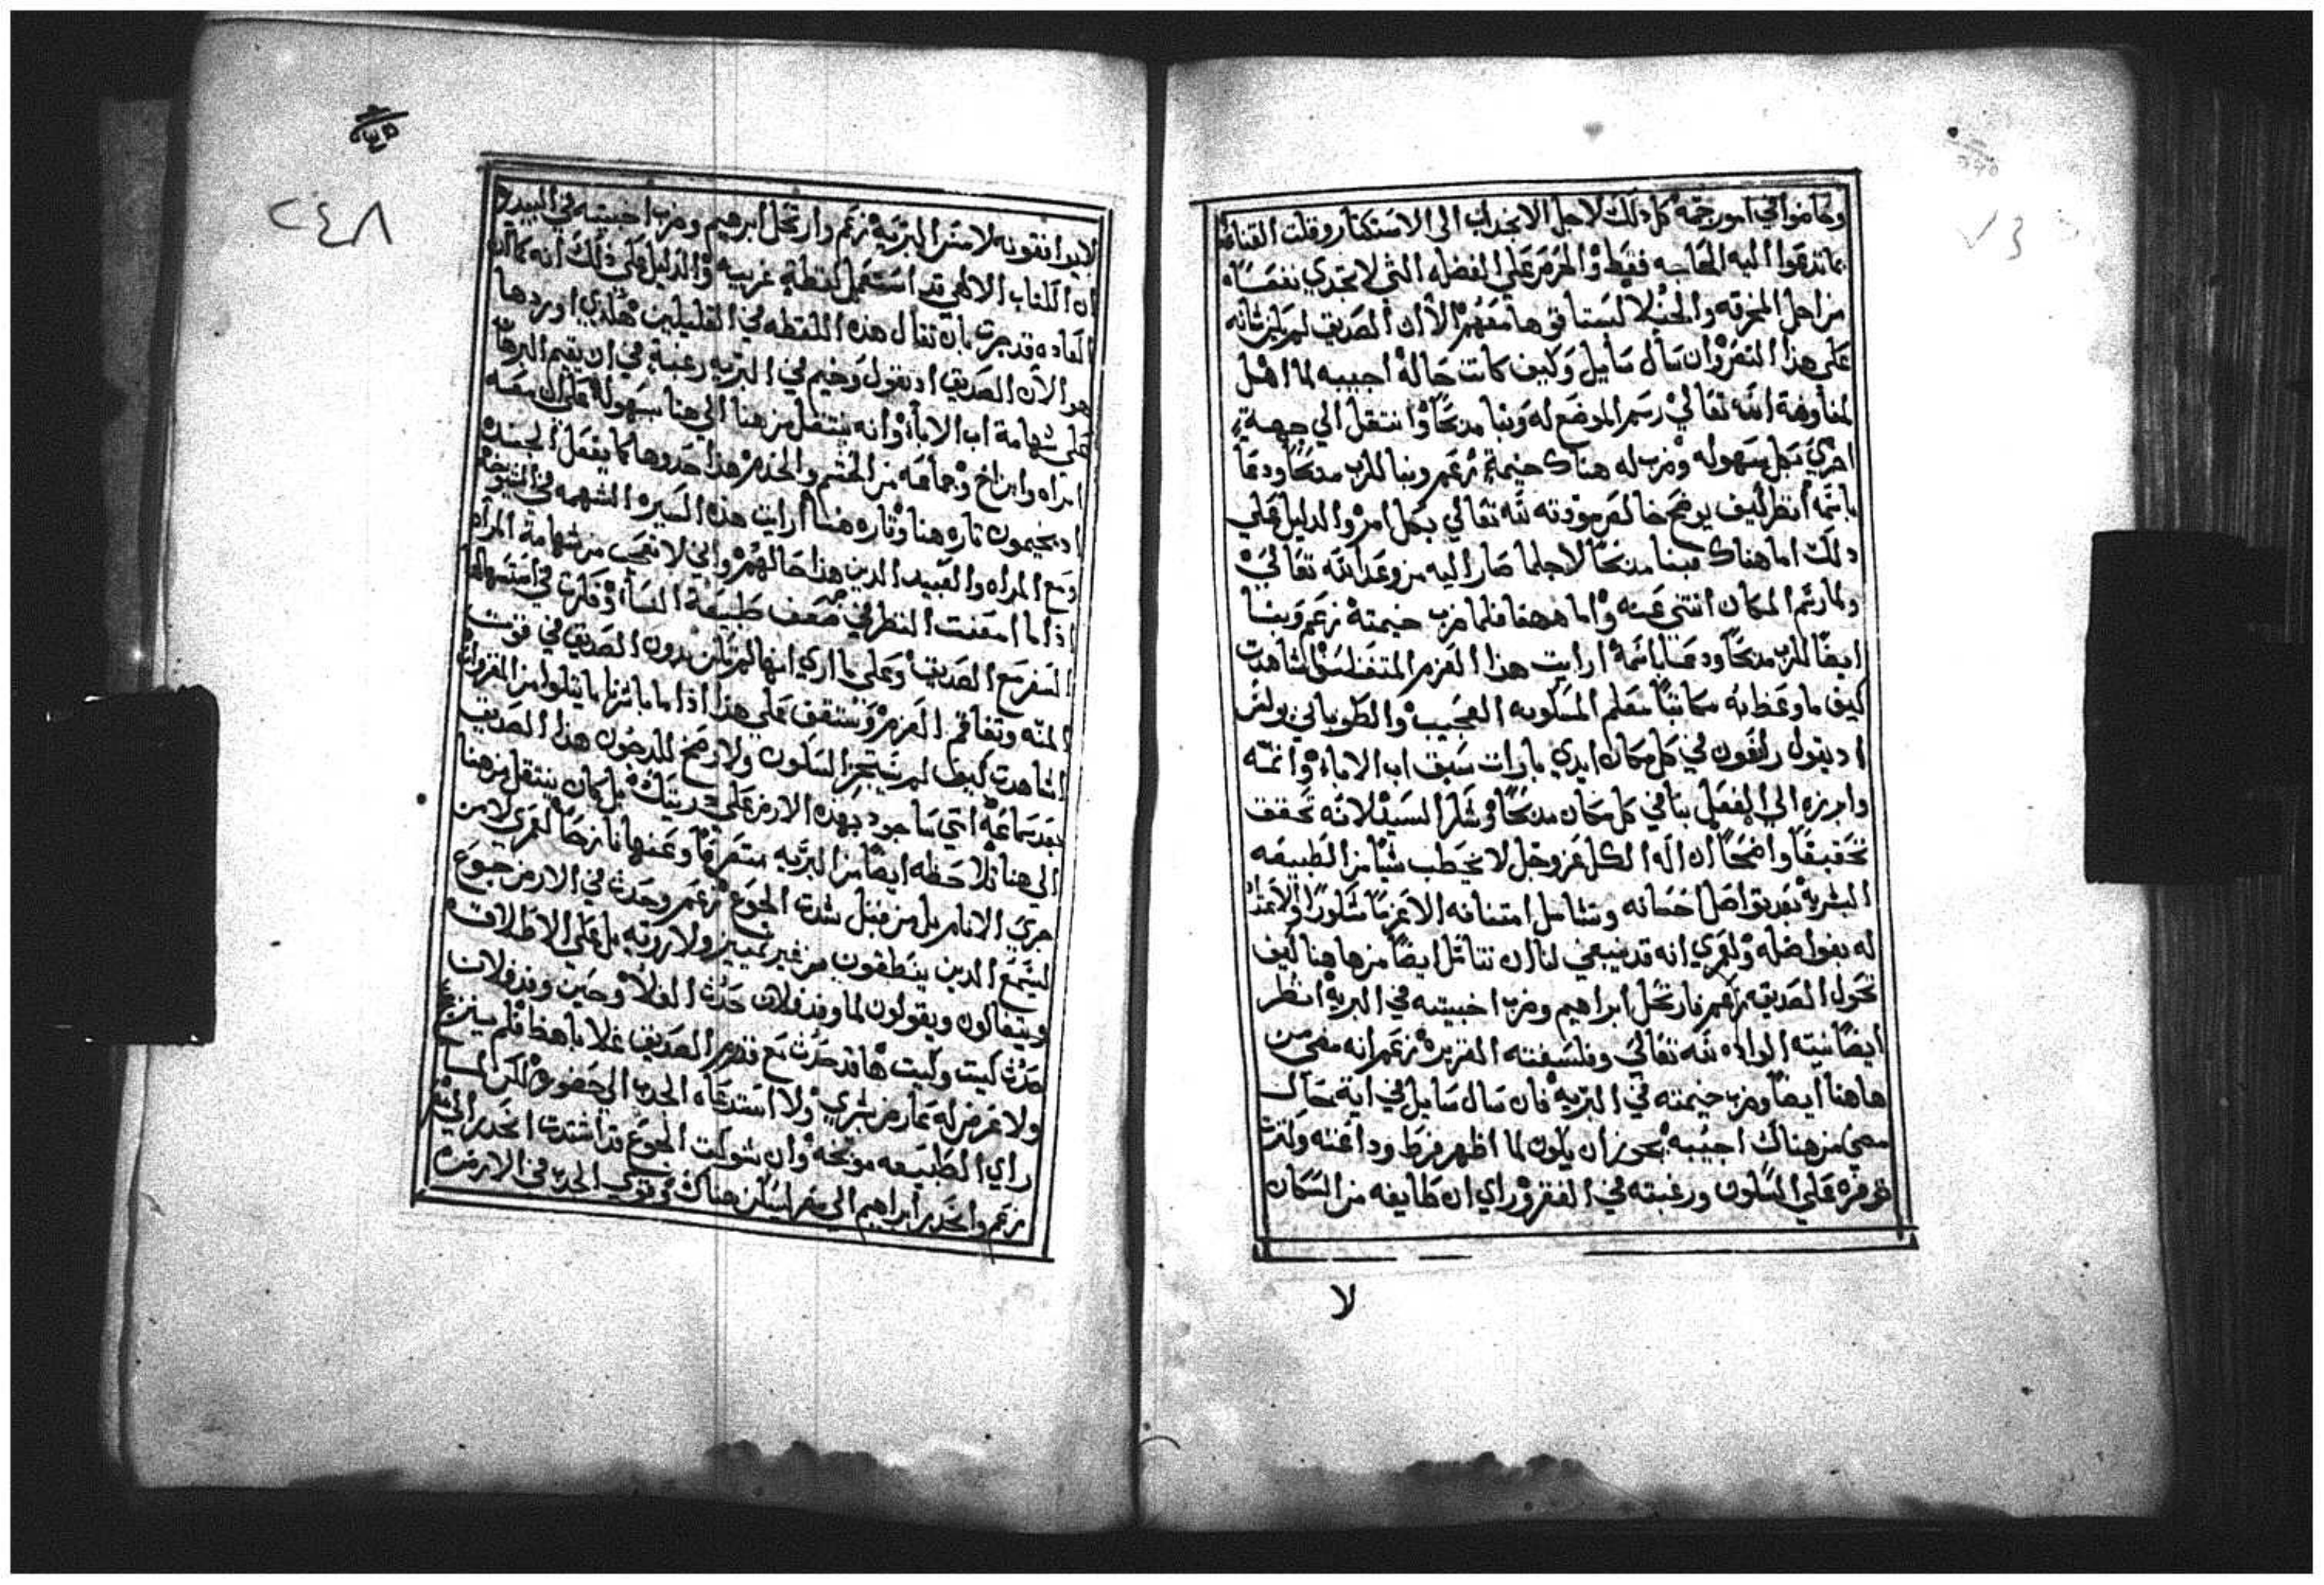 وخاضوا في امور جمه كل ذلك لاجل الانجذاب الى الاستكثار وقلت القناعه
بما تدعوا اليه الحاجه فقط والحرص على الفضله التى لا تجدي نفعًا
من اجل المخرقه والخيلا لستافوها معهم الا ان الصديق لم يكن شانه
على هذا النحو وان سأل سايل وكيف كانت حاله اجيبه لما اهل
لمفاوضة الله تعالي رسم الموضع له وبنا مدبحًا وانتقل الي جهة
اخري بكل سهوله وضرب له هناك خيمة زعم وبنا للرب مدبحًا ودعا
باسمه انظر كيف يوضح خالص مودته لله تعالي بكل امر والدليل على
ذلك اما هناك فبنا مدبحًا لاجل ما صار اليه من وعد الله تعالي
ولما رسم المكان انثنى عنه واما ههنا فلما ضرب خيمته زعم وبنا
ايضًا للرب مدبحًا ودعا باسمه ارايت هذا العزم المتفلسف شاهدت
كيف ما وعظ به كاتبًا معلم المسكونه العجيب والطوباني بولس
اذ يقول رافعون في كل مكان ايدي بارات سبق اب الاباء واتمه
وابرزه الي الفعل بنا في كل مكان مدبحًا وشكر السيد لانه تحقق
تحقيقًا واضحًا ان اله الكل عز وجل لا يخطب شيًا من الطبيعه
البشريه بعد تواصل احسانه وتشامل امتنانه الا عزمًا شكورًا والاعتراف
له بفواضله ولعمري انه قد ينبغي لنا ان نتامل ايضًا من هاهنا كيف
تحول الصديق زعم فارتحل ابراهيم وضرب اخبيته في البريه انظر
ايضًا نيته الواده لله تعالي وفلسفته الغزيره زعم انه مضي من
هاهنا ايضًا وضرب خيمته في البريه فان سال سايل في اية محال
مضي من هناك اجيبه يجوز ان يكون لما اظهر فرط وداعته وكثرة
حرصه على السكون ورغبته في الفقر وراي ان طايفه من السكان
لا
٢٤٨
لا يوافقونه لا مترا البريه زعم وارتحل ابرهيم وضرب اخبيته في البيدا
ان الكتاب الالهي قد استعمل لفظة غريبه والدليل على ذلك انه كما ان
العاده قد جرت بان تقال هذه اللفظه في القليلين هكذي اوردها
هو الان الصديق اذ يقول وخيم في البريه رغبة في ان يقيم البرهان
على شهامة اب الاباء وانه ينتقل من هنا الي هنا بسهوله على ان معه
امراه وابن اخ وجماعه من الحشم والخدم هذا حذوها كما يفعل الجنده
اذ يخيمون تاره هنا وتاره هنا ارايت هذه السيره الشهمه في الشيخوخه
ومع المراه والعبيد الدين هذا حالهم واني لاتعجب من شهامة المراه
اذا ما امعنت النظر في ضعف طبيعة النسأ وفكرت في استسهالها
السفر مع الصديق وعلى ما اري انها لم تكن بدون الصديق في قوت
المنه وتفاقم العزم وستقف على هذا اذا ما باشرنا ما يتلوا من المقروات
اشاهدت كيف لم يستجز السكون ولا رضخ للدعون هذا الصديق
بعد سماعه انني ساجود بهذه الارض على ذريتك بل كان ينتقل من هنا
الي هنا تلاحظه ايضًا من البريه متعرقًا وعنها نازحًا لعمري لا من
جري الانام بل من قبل شدت الجوع زعم وحدث في الارض جوع
ليسمع الدين ينطقون من غير تمييز ولا رويه بل على الاطلاق
ويتفالون ويقولون لما وفد فلان حدث الغلاء وحين وفد فلان
حدث كيت وكيت هاقد حدث مع قدوم الصديق غلا باهظا فلم ينزعج
ولا عرض له عارض بشري ولا استدعاه الجدب الي حضوره لكن لما
راي الطبيعه موبخة وان شوكت الجوع قد اشتدت انحدر الي مصر
زعم وانحدر ابراهيم الي مصر ليسكن هناك ثم قوي الجدب في الارض